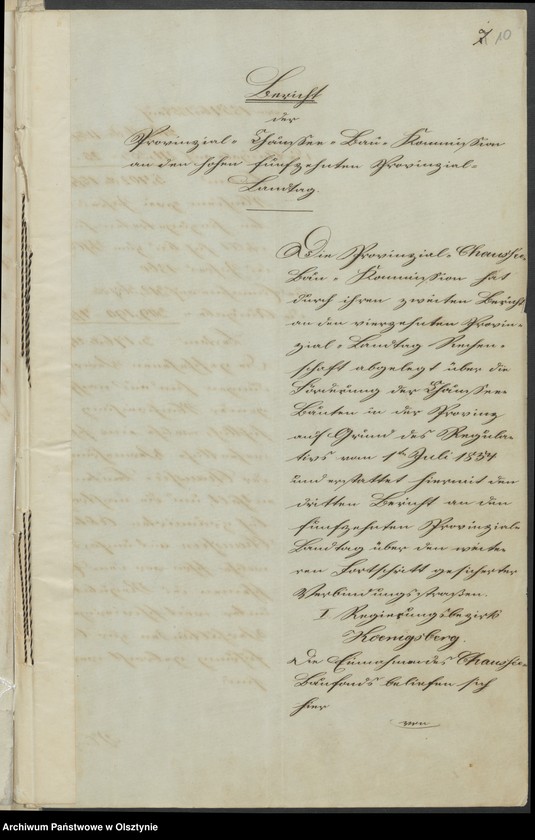 7 10
Bericht
der
Provinzial-Chaussee-Bau-Kommission
an den hohen fünfzehnten Provinzial-
Landtag.
Die Provinzial-Chaussee-
Bau-Kommission hat
durch ihren zweiten Bericht
an den vierzehnten Provin-
zial-Landtag Rechen-
schaft abgelegt über die
Förderung der Chaussee-
Bauten in der Provinz
auf Grund des Regula-
tivs vom 1ten Juli 1854
und erstattet hiermit den
dritten Bericht an den
fünfzehnten Provinzial-
Landtag über den weite-
ren Fortschritt gesicherter
Verbindungsstraßen.
I Regierungsbezirk
Koenigsberg.
Die Einnahmen des Chaussee-
Baufonds beliefen sich
hier
von
Archiwum Państwowe w Olsztynie